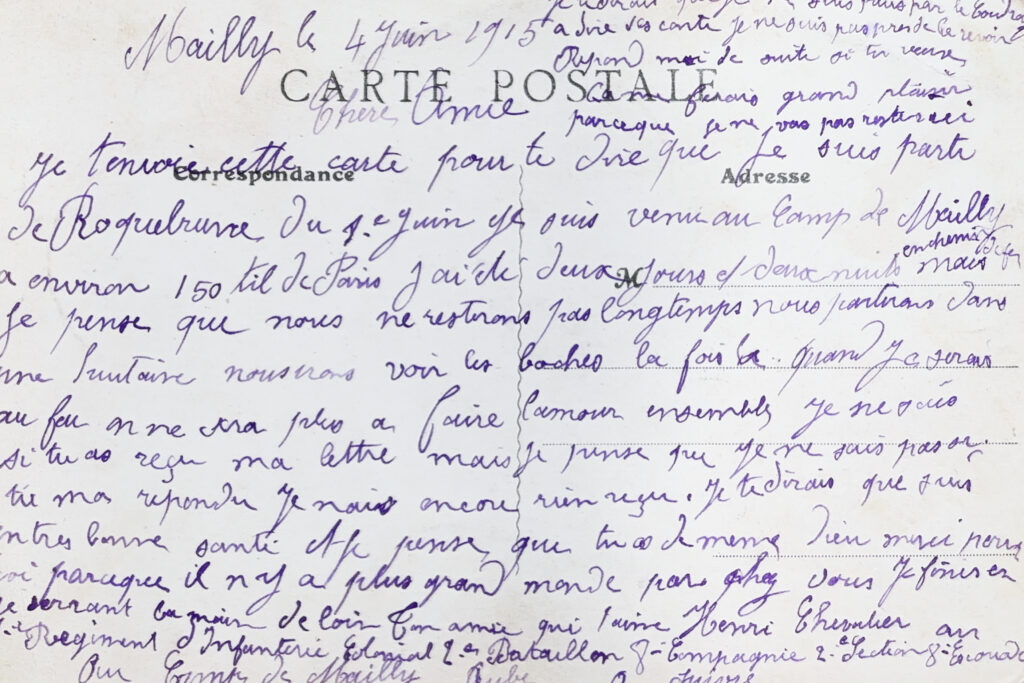 Mailly le 4 Juin 1915
CARTE POSTALE
Chère Amie
Je t'envoie cette carte pour te dire que Je suis parti
Correspondance
Adresse
de Roquebrune du 1e Juin Je suis venu au Camp de Mailly
a environ 150 kil de Paris J ai été deux Jours et deux nuits en chemin de fer mais
M
Je pense que nous ne resterons pas longtemps nous partirons dans
une huitaine nous irons voir les boches la fois la quand Je serais
au feu on ne sera plus a faire l'amour ensembles Je ne sais
si tu as reçu ma lettre mais Je pense que Je ne sais pas si
tu ma repondu Je nais encore rien reçu. Je te dirais que suis
en tres bonne santé et Je pense que tu as de meme Dieu merci pour
toi parceque il n y a plus grand monde par chez vous Je finis en
te serrant la main de loin Ton amie qui t'aime Henri Chevalier au
Regiment d'Infanterie Colonial 2e Bataillon 8e Compagnie 2e Section 8e Escouade
Au Camp de Mailly Aube
a dire des carte Je ne suis pas pres de te revoir
Repond moi de suite si tu veux
Ca me ferais grand plaisir
parceque Je ne vas pas rester ici